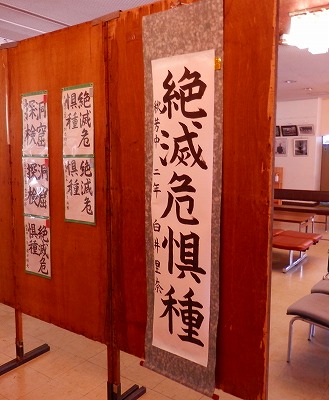 絶滅危惧種
秋芳中二年 白井里奈
絶滅危
惧種
絶滅危
惧種
洞窟
探検
洞窟
探検
絶滅危
惧種